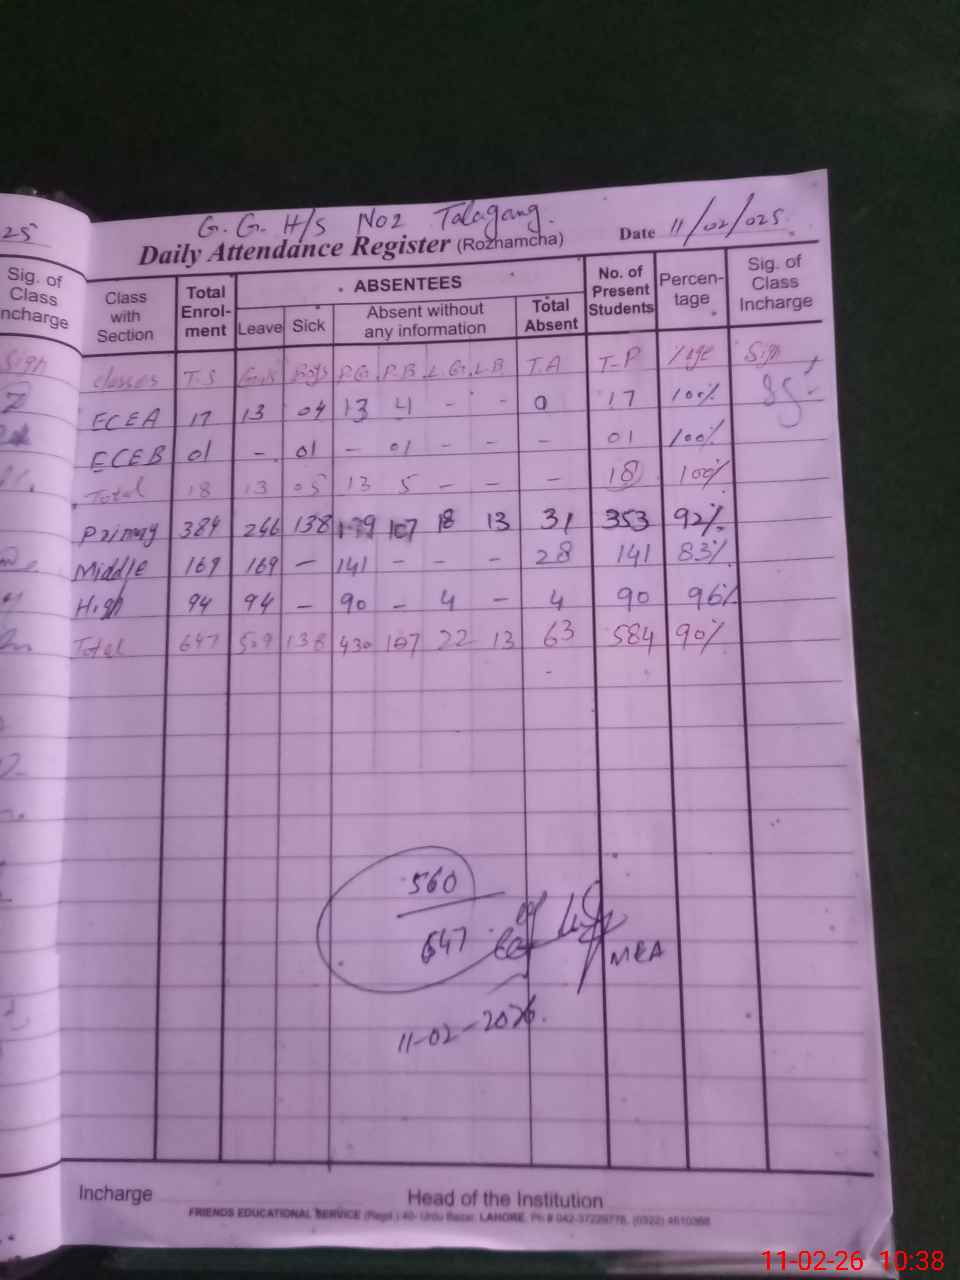 25
Sig. of
Class
ncharge
Sign
G. G. H/S No2 Talagang.
Daily Attendance Register (Roznamcha) Date 11/02/025.
Class with Section Total Enrol-ment ABSENTEES No. of Present Students Percen-tage Sig. of Class Incharge
Leave Sick Absent without any information Total Absent
Classes T.S Girls Boys P.G. P.B L.G. L.B T.A T-P /age Sign
ECEA 17 13 04 13 4 - - 0 17 100%
ECEB 01 - 01 - 01 - - - 01 100%
Total 18 13 05 13 5 - - - 18 100%
Primary 384 246 138 107 18 13 31 353 92%
Middle 169 169 - 141 - - - 28 141 83%
High 94 94 - 90 - 4 - 4 90 96%
Total 647 509 138 430 107 22 13 63 584 90%
560
647
MEA
11-02-2026.
Incharge Head of the Institution
FRIENDS EDUCATIONAL SERVICE (Regd.) 40- Urdu Bazar, LAHORE. Ph # 042-37229778, (0322) 4610368
11-02-26 10:38